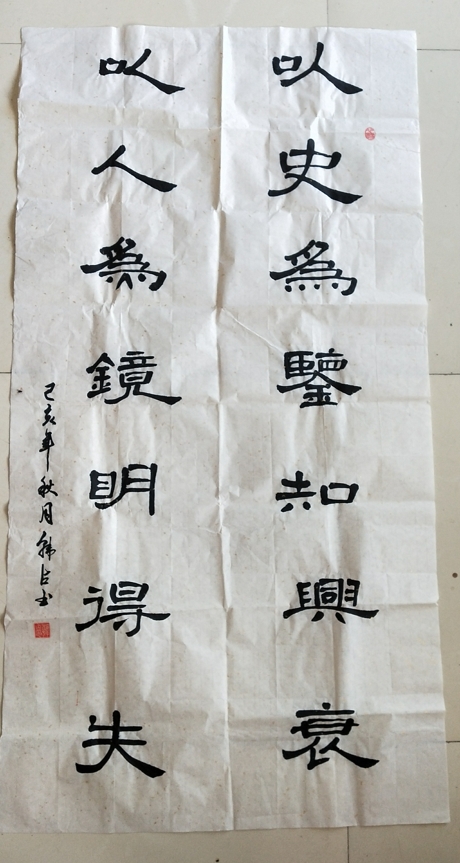 以史為鑒知興衰
以人為鏡明得失
己亥年秋月韩占书